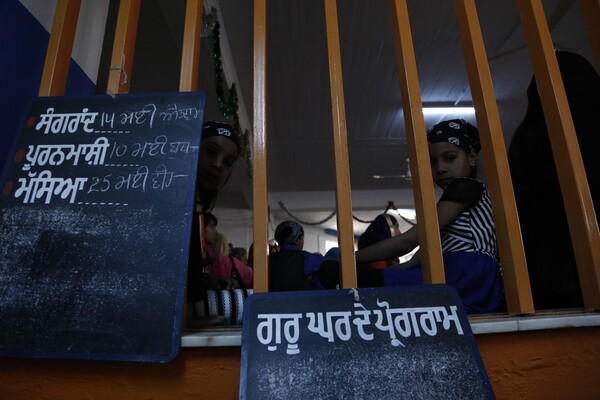 ਸੰਗਰਾਂਦ 14 ਮਈ
ਪੂਰਨਮਾਸ਼ੀ 10 ਮਈ ਬੁਧ
ਮੱਸਿਆ 25 ਮਈ ਵੀਰ
ਗੁਰੂ ਘਰ ਦੇ ਪ੍ਰੋਗਰਾਮ